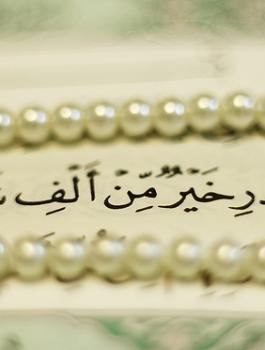 خَيْرٌ مِّنْ أَلْفِ